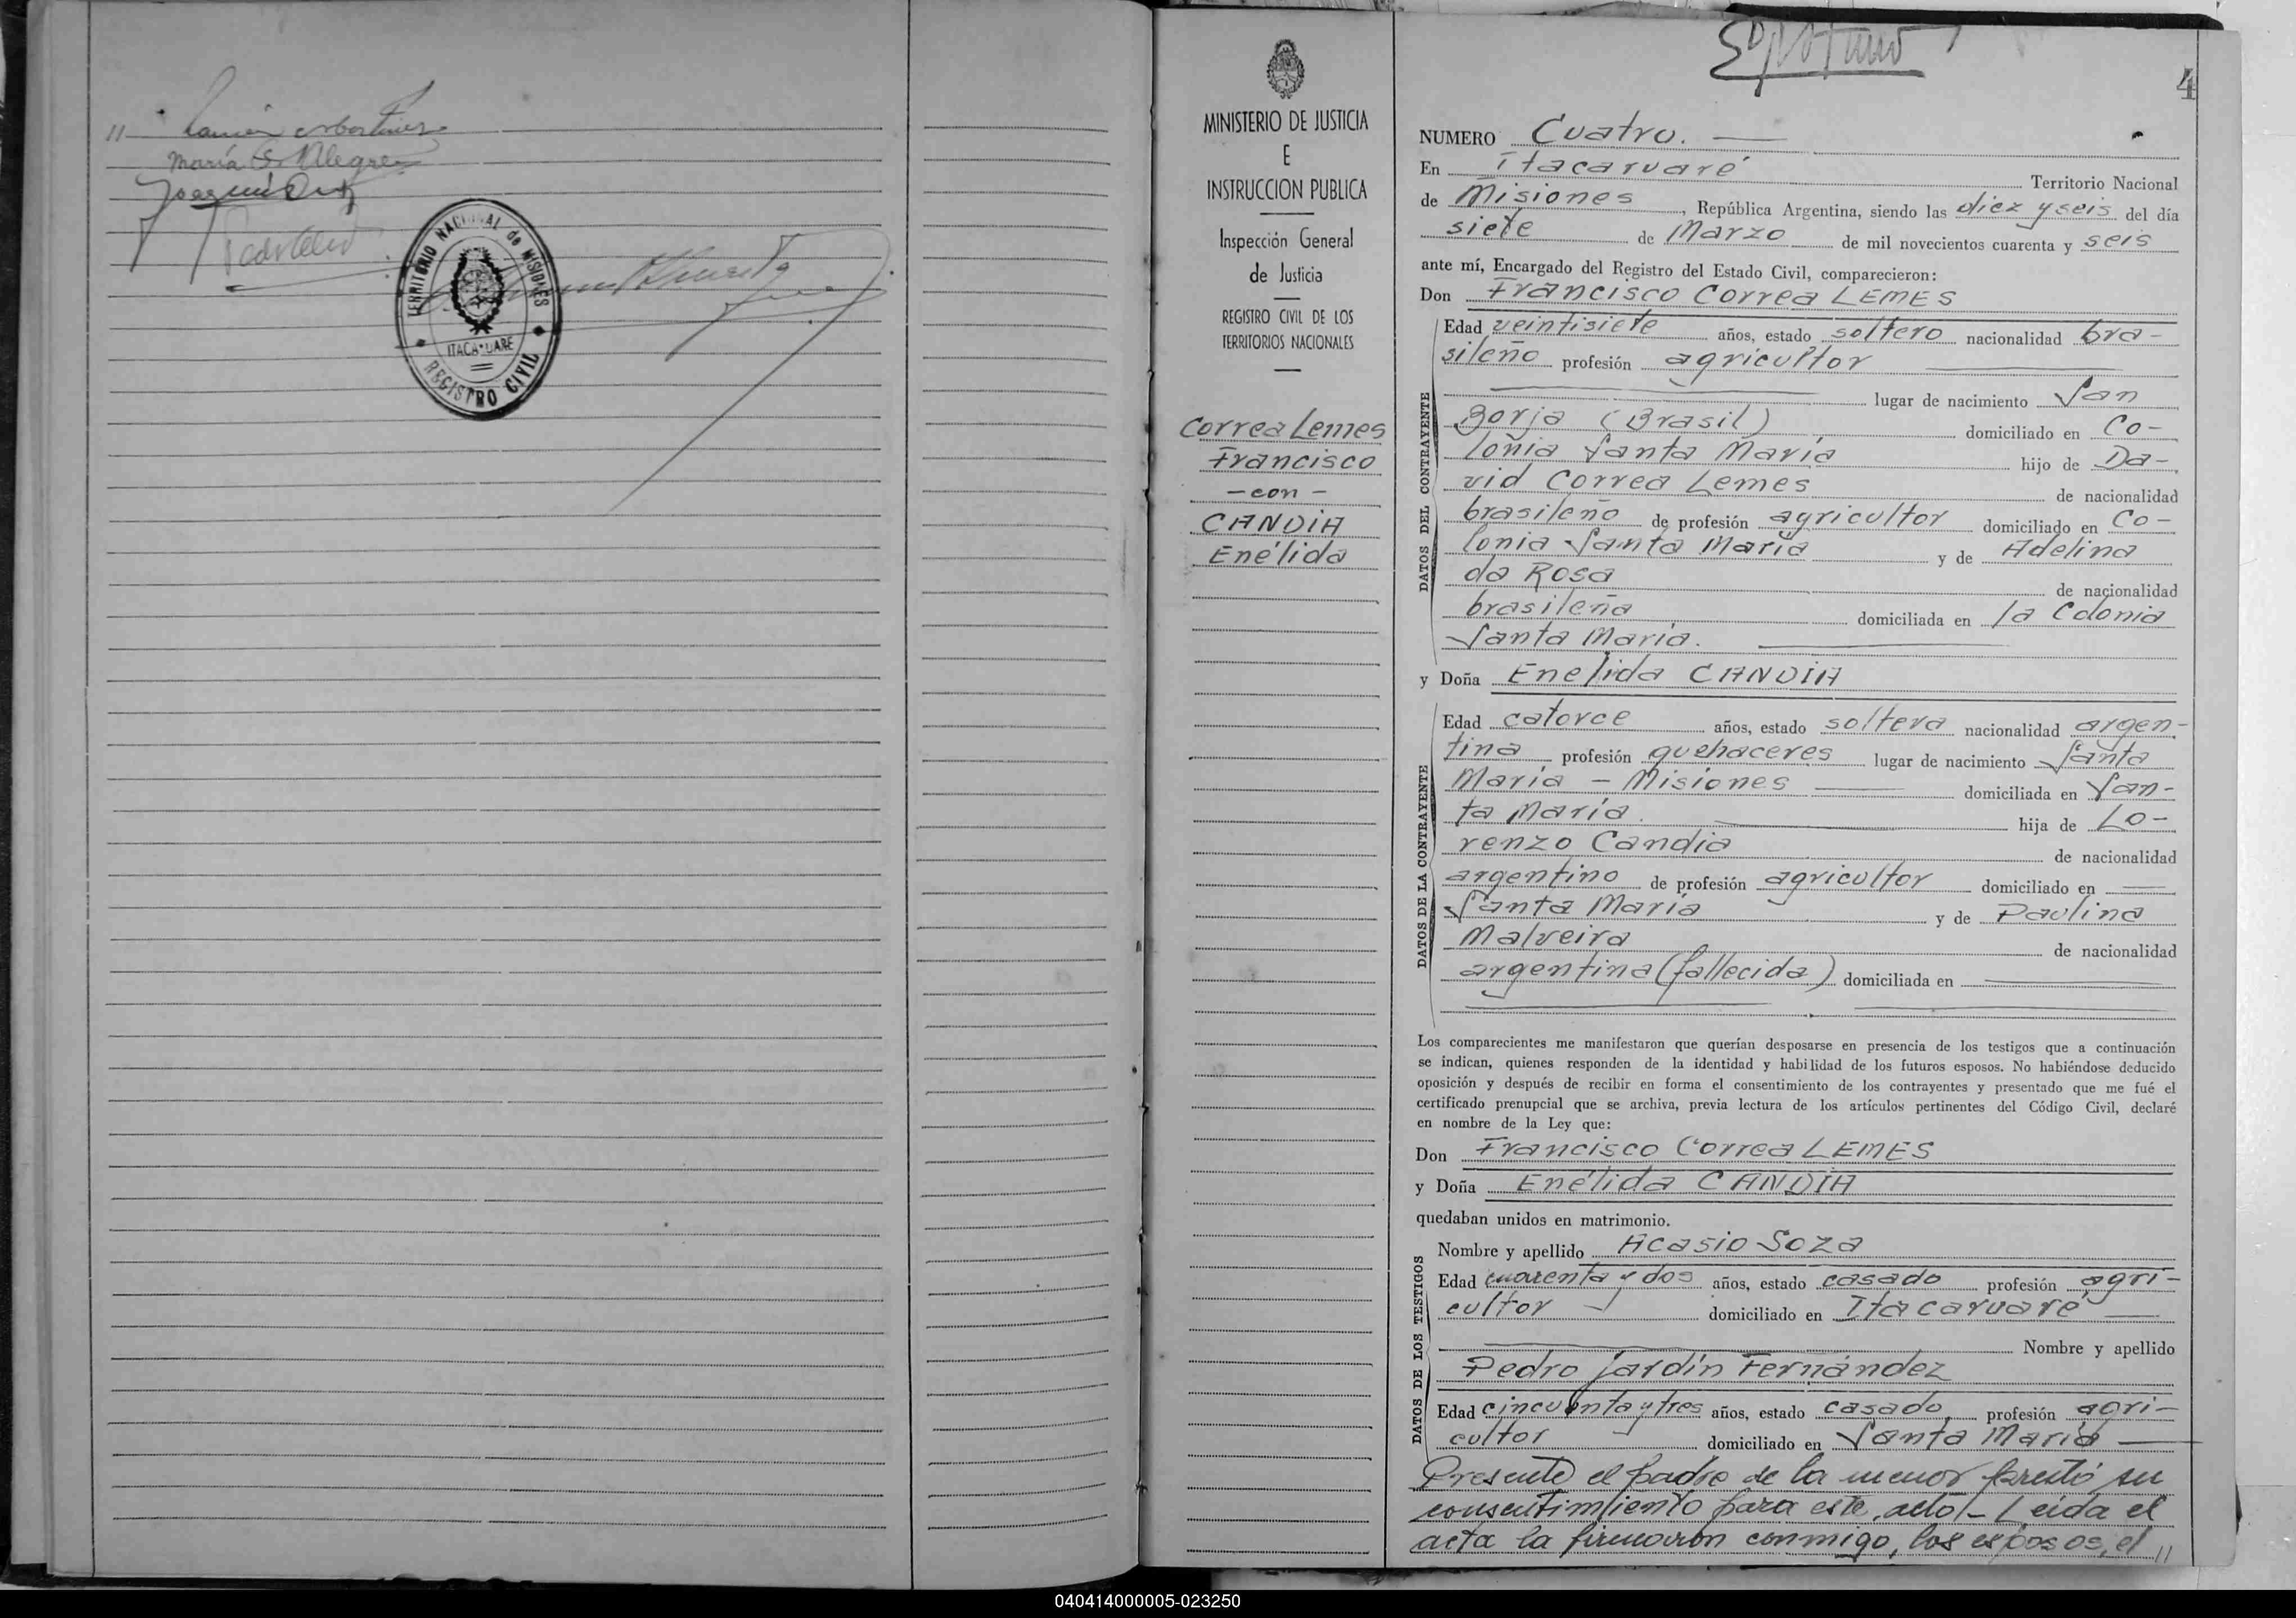 María S. Alegre
Joaquín Ortiz
TERRITORIO NACIONAL de MISIONES
ITACARUARE
REGISTRO CIVIL
MINISTERIO DE JUSTICIA
E
INSTRUCCION PUBLICA
Inspección General
de Justicia
REGISTRO CIVIL DE LOS
TERRITORIOS NACIONALES
Correa Lemes
Francisco
- con -
CANDIA
Enélida
4
NUMERO Cuatro.
En Itacaruaré Territorio Nacional
de Misiones, República Argentina, siendo las diez y seis del día
siete de Marzo de mil novecientos cuarenta y seis
ante mí, Encargado del Registro del Estado Civil, comparecieron:
Don Francisco Correa LEMES
DATOS DEL CONTRAYENTE
Edad veintisiete años, estado soltero nacionalidad bra-
sileño profesión agricultor
lugar de nacimiento San
Borja (Brasil) domiciliado en Co-
lonia Santa María hijo de Da-
vid Correa Lemes de nacionalidad
brasileño de profesión agricultor domiciliado en Co-
lonia Santa María y de Adelina
da Rosa de nacionalidad
brasileña domiciliada en la Colonia
Santa María.
y Doña Enélida CANDIA
DATOS DE LA CONTRAYENTE
Edad catorce años, estado soltera nacionalidad argen-
tina profesión quehaceres lugar de nacimiento Santa
María - Misiones domiciliada en San-
ta María. hija de Lo-
renzo Candia de nacionalidad
argentino de profesión agricultor domiciliado en
Santa María y de Paulina
Malveira de nacionalidad
argentina (fallecida) domiciliada en
Los comparecientes me manifestaron que querían desposarse en presencia de los testigos que a continuación
se indican, quienes responden de la identidad y habilidad de los futuros esposos. No habiéndose deducido
oposición y después de recibir en forma el consentimiento de los contrayentes y presentado que me fué el
certificado prenupcial que se archiva, previa lectura de los artículos pertinentes del Código Civil, declaré
en nombre de la Ley que:
Don Francisco Correa LEMES
y Doña Enélida CANDIA
quedaban unidos en matrimonio.
DATOS DE LOS TESTIGOS
Nombre y apellido Acasio Soza
Edad cuarenta y dos años, estado casado profesión agri-
cultor domiciliado en Itacaruaré
Nombre y apellido
Pedro Jardín Fernández
Edad cincuenta y tres años, estado casado profesión agri-
cultor domiciliado en Santa María
Presente el padre de la menor prestó su
consentimiento para este acto.- Leída el
acta la firmaron conmigo, los esposos, el //
040414000005-023250